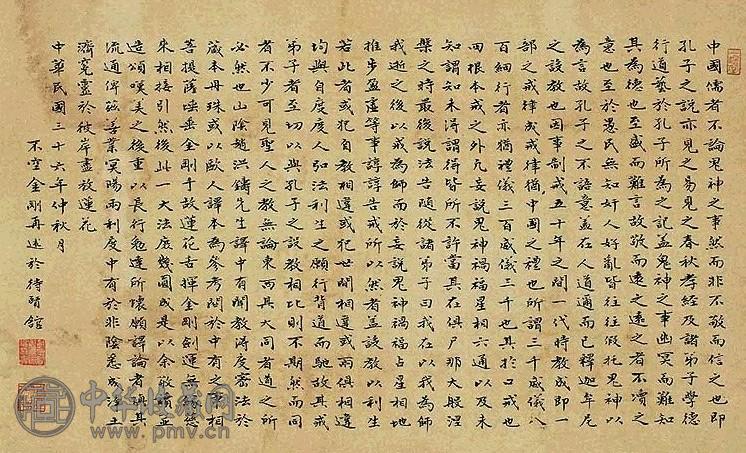 中國儒者不論鬼神之事然而非不敬而信之也即
孔子之說亦見之易見之春秋孝經及諸弟子學德
行通藝於孔子所為之記蓋鬼神之事幽冥而難知
其為德也至盛而難言故敬而遠之遠之者不瀆之
意也至於愚民無知奸人好亂皆往往假托鬼神以
為言故孔子之不語意蓋在人道通而已釋迦牟尼
之設教也因事制戒五十年之間一代時教成即一
部之戒律成戒律猶中國之禮也所謂三千威儀八
百細行者亦猶禮儀三百威儀三千也其於口戒也
四根本戒之外凡妄說鬼神禍福星相六通以及未
知謂知未得謂得皆所不許當其在俱尸那大般涅
槃之時最後說法告隨從諸弟子曰我在以我為師
我逝之後以戒為師而於妄說鬼神禍福占星相地
推步盈虛等事諄諄告戒所以然者蓋設教以利生
若此者或犯自教相違或犯世間相違或兩俱相違
均與自度度人弘法利生之願行背道而馳故其戒
弟子者至切以與孔子之設教相比則不期然而同
者不少可見聖人之教無論東西其大同者道之所
必然也山陰趙洪鑄先生譯中有聞教得度密法於
藏本丹珠或以歐人譯本為參考關於中有之事相
菩提薩埵垂金剛手放蓮花舌揮金剛劍運無緣慈
來相接引然後此一大法度幾圓成是以余敬為並
造頌嘆美之後重以長行勉達所懷願譯論者俱其
流通俾茲善業冥陽兩利度中有於非陰悉成淨土
濟冤靈於彼岸盡放蓮花
中華民國三十六年仲秋月
不空金剛再述於待醒館
中华博物网
www.pmv.cn